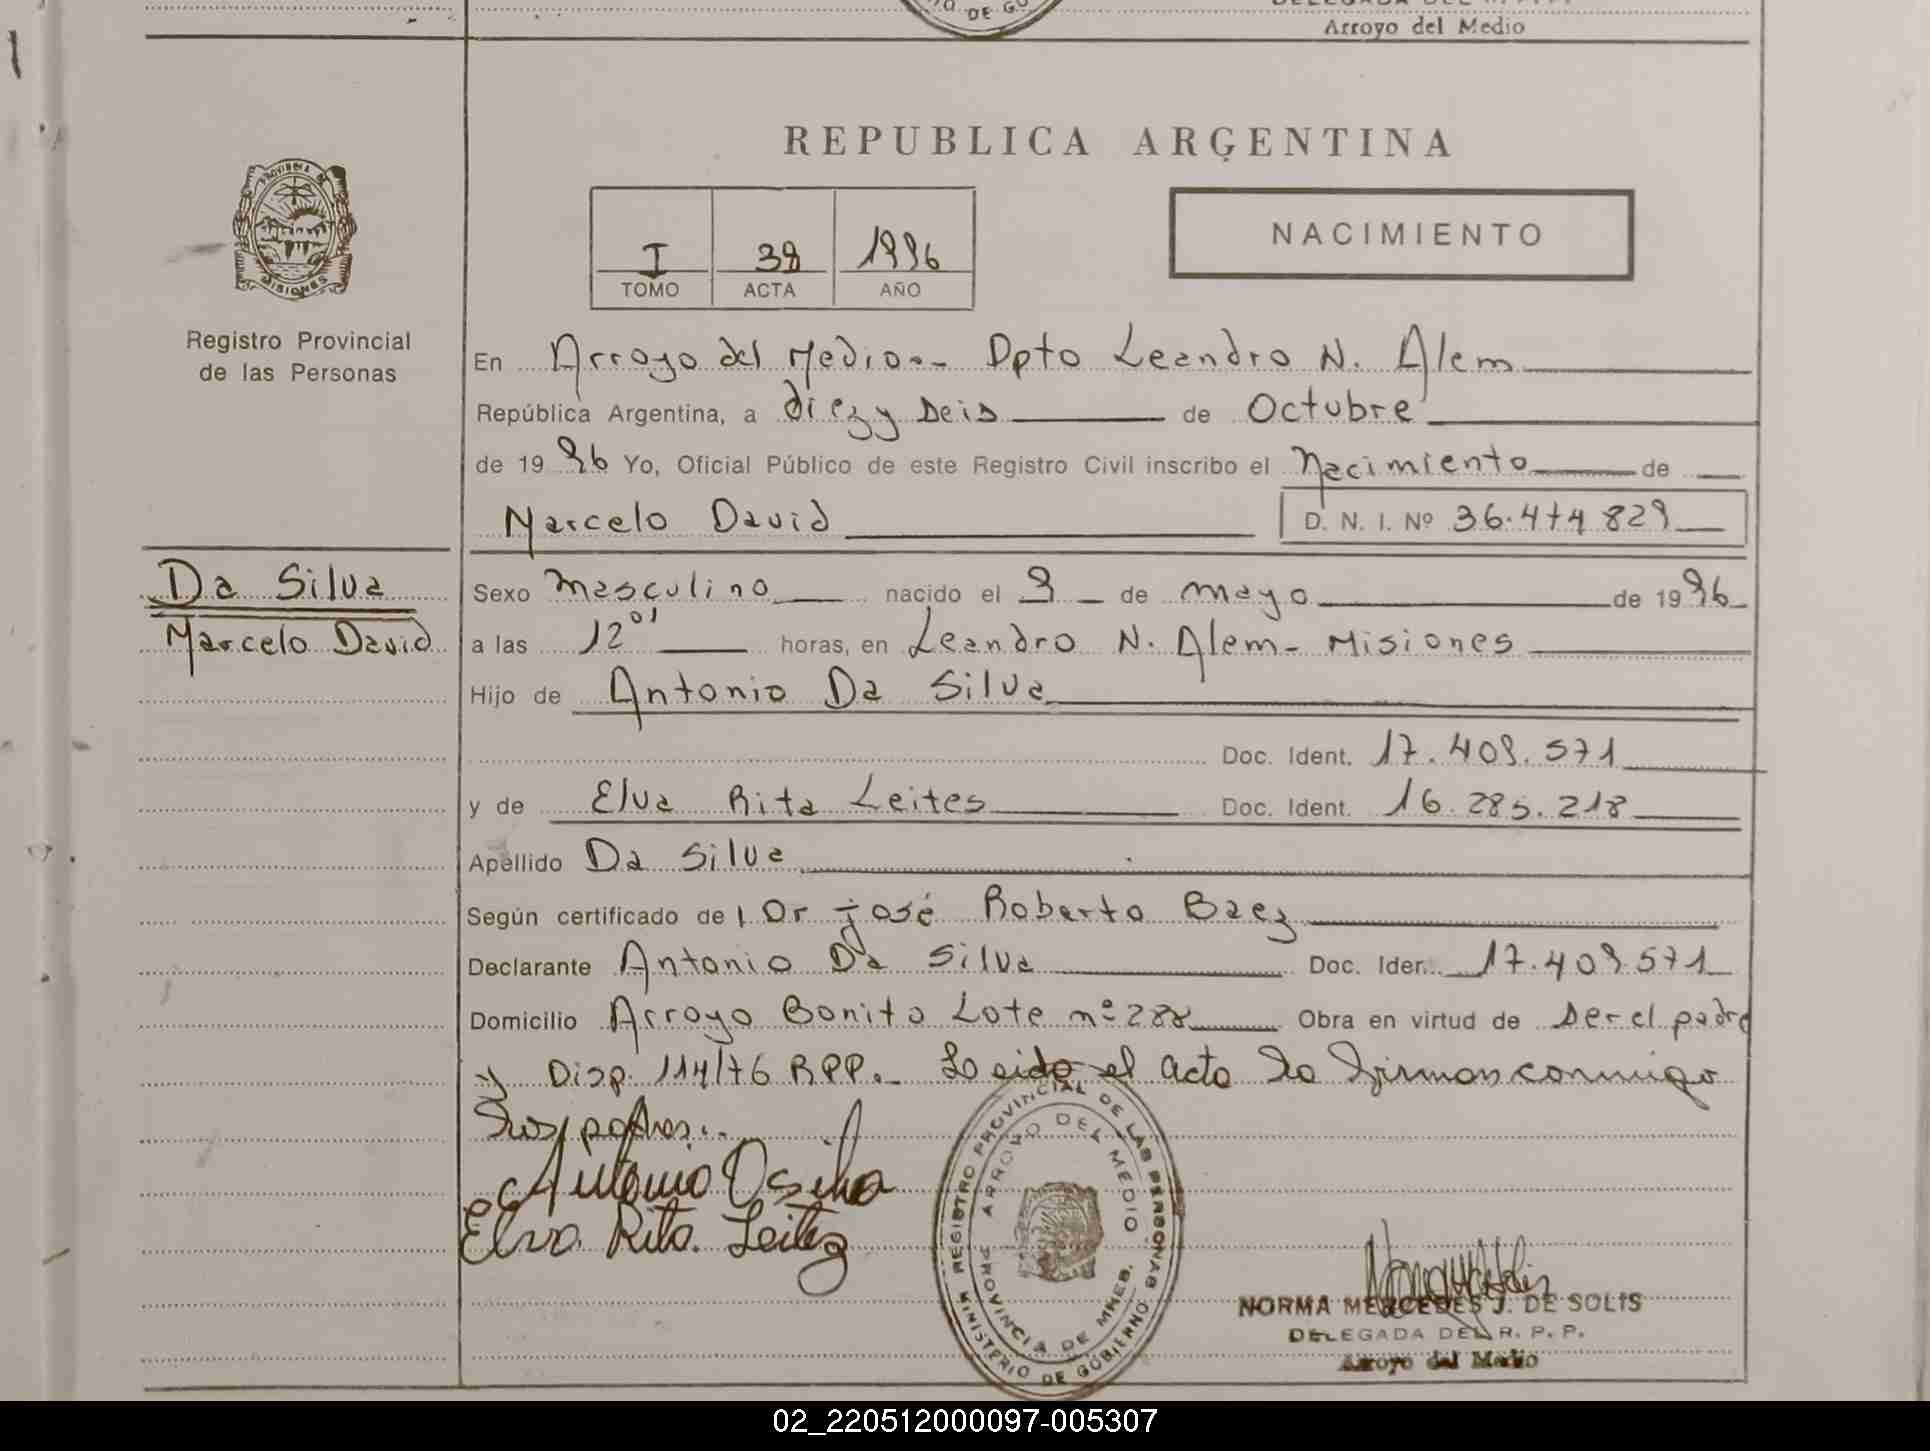 Arroyo del Medio
REPUBLICA ARGENTINA
NACIMIENTO
I 38 1996
TOMO ACTA AÑO
PROVINCIA DE MISIONES
Registro Provincial
de las Personas
En Arroyo del Medio.- Dpto Leandro N. Alem
República Argentina, a diez y seis de Octubre
de 1996 Yo, Oficial Público de este Registro Civil inscribo el Nacimiento de
Marcelo David D. N. I. Nº 36.474829
Da Silva
Marcelo David
Sexo masculino nacido el 9 de mayo de 1996
a las 12 01 horas, en Leandro N. Alem - Misiones
Hijo de Antonio Da Silva
Doc. Ident. 17.409.571
y de Elva Rita Leites Doc. Ident. 16.285.218
Apellido Da Silva
Según certificado de Dr José Roberto Baez
Declarante Antonio Da Silva Doc. Iden. 17.409571
Domicilio Arroyo Bonito Lote nº 288 Obra en virtud de ser el padre
y Disp. 114/76 RPP.- Leido el acta la firman conmigo
sus padres..
Antonio Da Silva
Elva Rita Leitez
REGISTRO PROVINCIAL DE LAS PERSONAS
ARROYO DEL MEDIO
PROVINCIA DE MNES.
MINISTERIO DE GOBIERNO
NORMA MERCEDES J. DE SOLIS
DELEGADA DEL R. P. P.
Arroyo del Medio
02_220512000097-005307